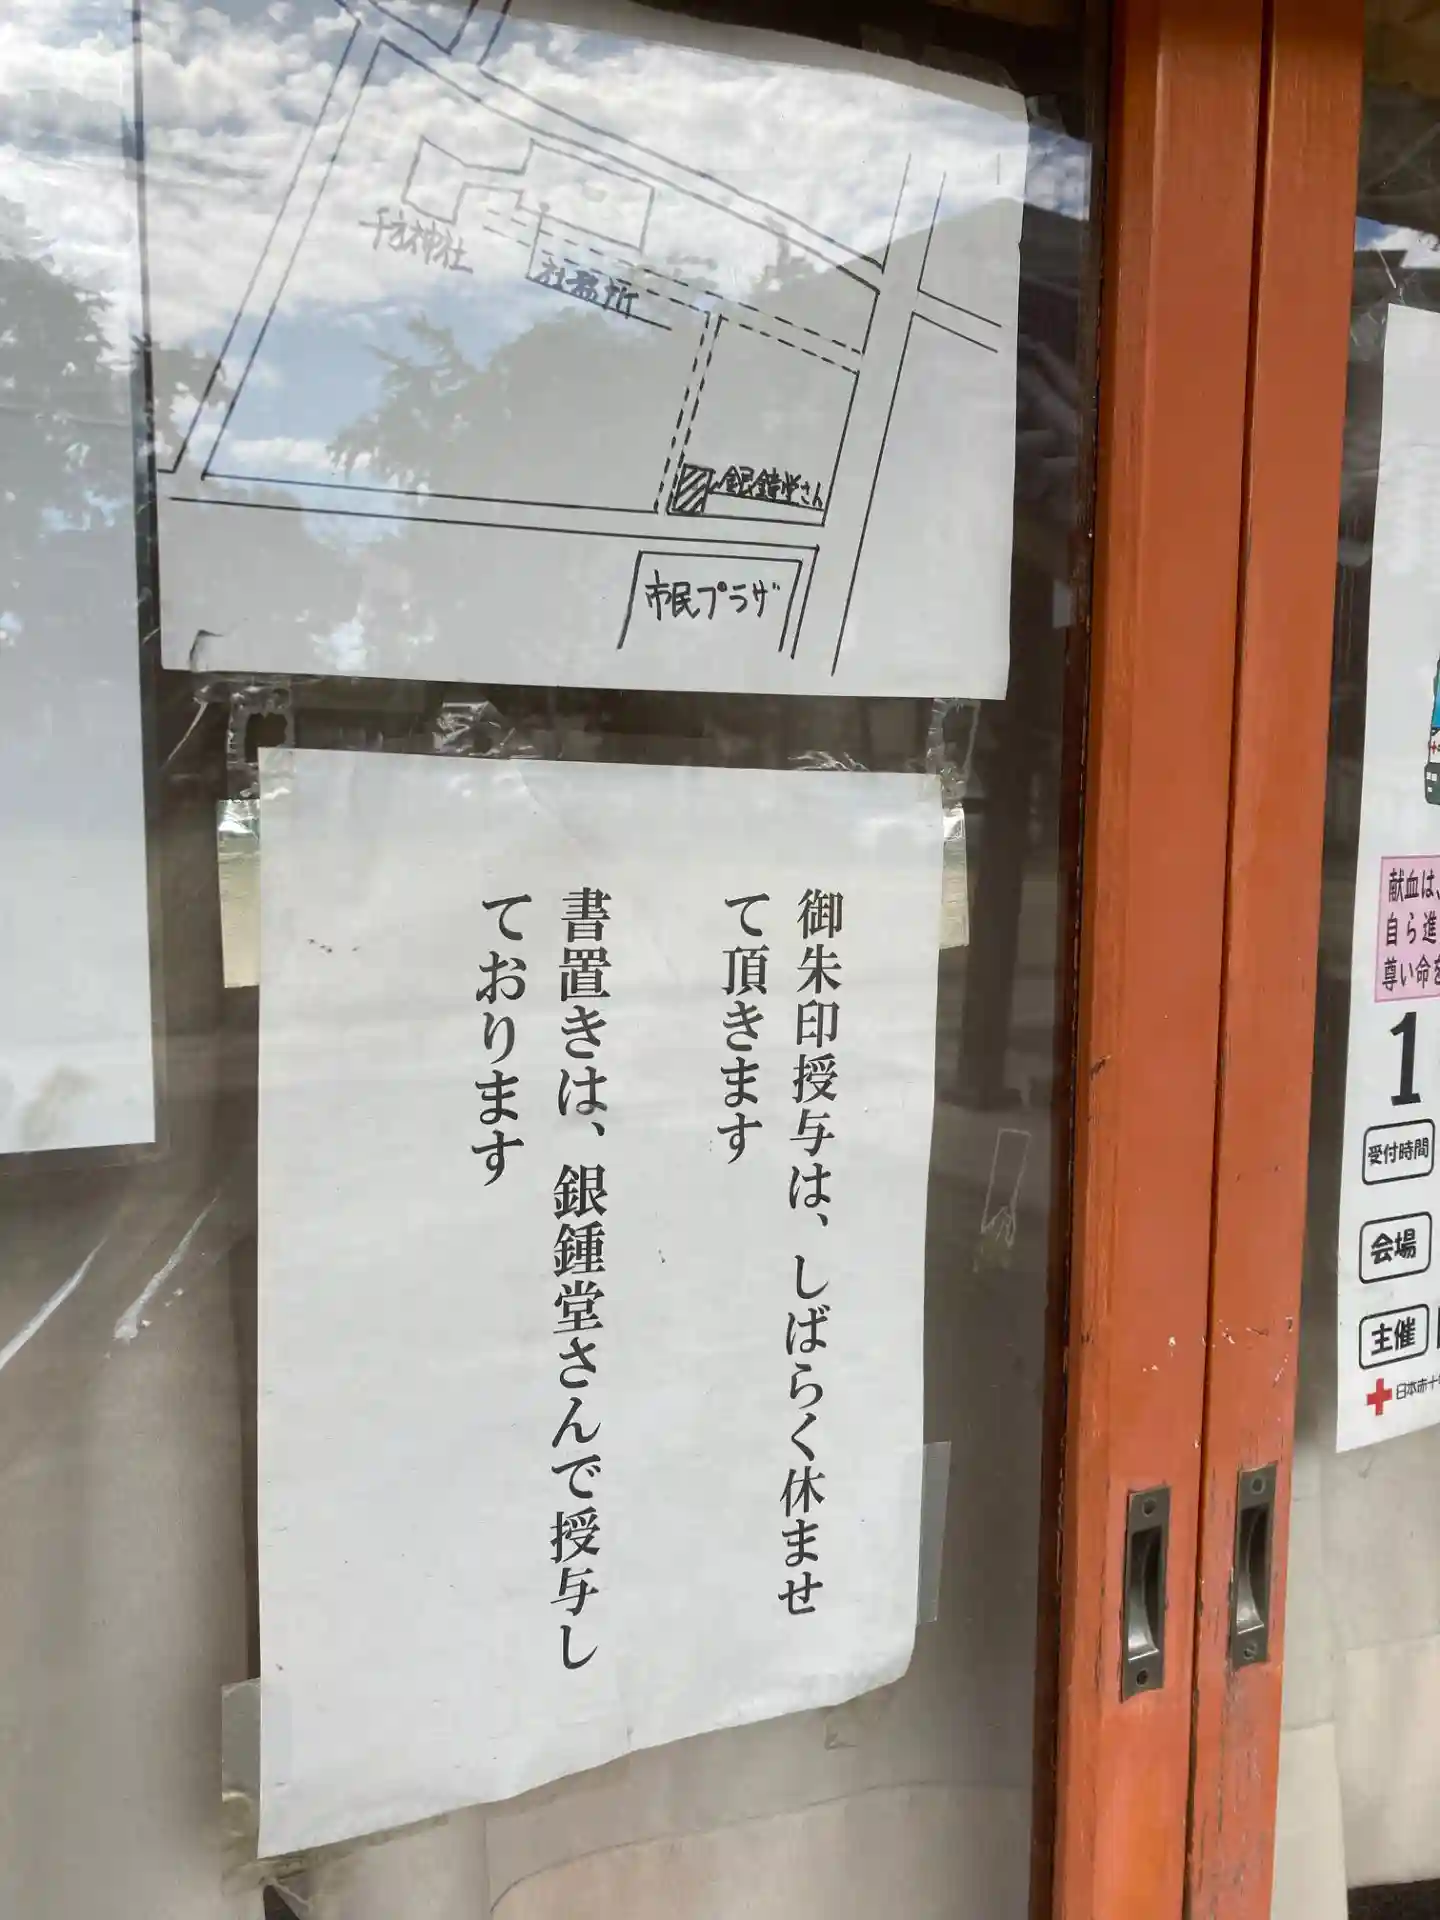 千方神社
社務所
銀鍾堂さん
市民プラザ
御朱印授与は、しばらく休ませ
て頂きます
書置きは、銀鍾堂さんで授与し
ております
献血は、
自ら進
尊い命を
1
受付時間
会場
主催
日本赤十